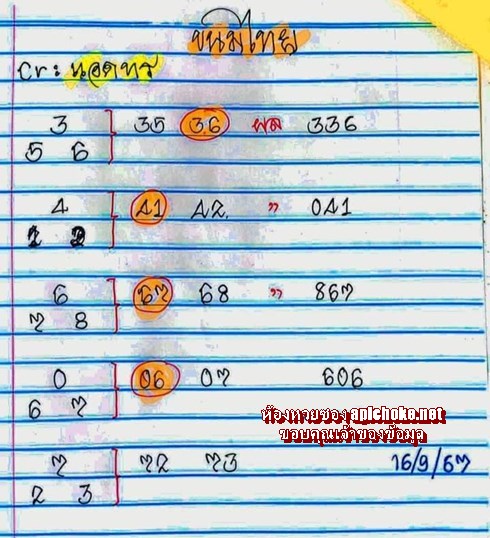 ขนมไทย
Cr: นอดทร
3 35 36 ผล 336
5 6
4 41 42 " 041
1 2
6 67 68 " 867
7 8
0 06 07 606
6 7
ห้องหวยซอง aplchoke.net
ขอบคุณเจ้าของข้อมูล
7 72 73 16/9/67
2 3